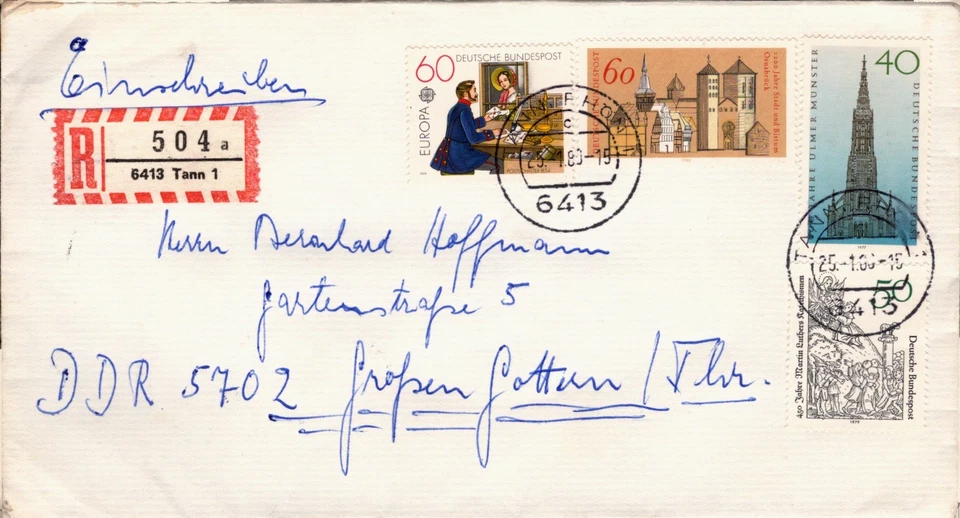 Einschreiben
R
504 a
6413 Tann 1
60
DEUTSCHE BUNDESPOST
EUROPA
60
DEUTSCHE BUNDESPOST
1200 Jahre Stadt und Bistum
Osnabrück
40
JAHRE ULMER MÜNSTER
DEUTSCHE BUNDESPOST
1977
TANN
25.-1.80-15
6413
TANN
25.-1.80-15
6413
50
450 Jahre Martin Luthers Katechismen
Deutsche Bundespost
1979
Herrn Bernhard Hoffmann
Gartenstraße 5
DDR 5702 Großen Gottern / Thr.